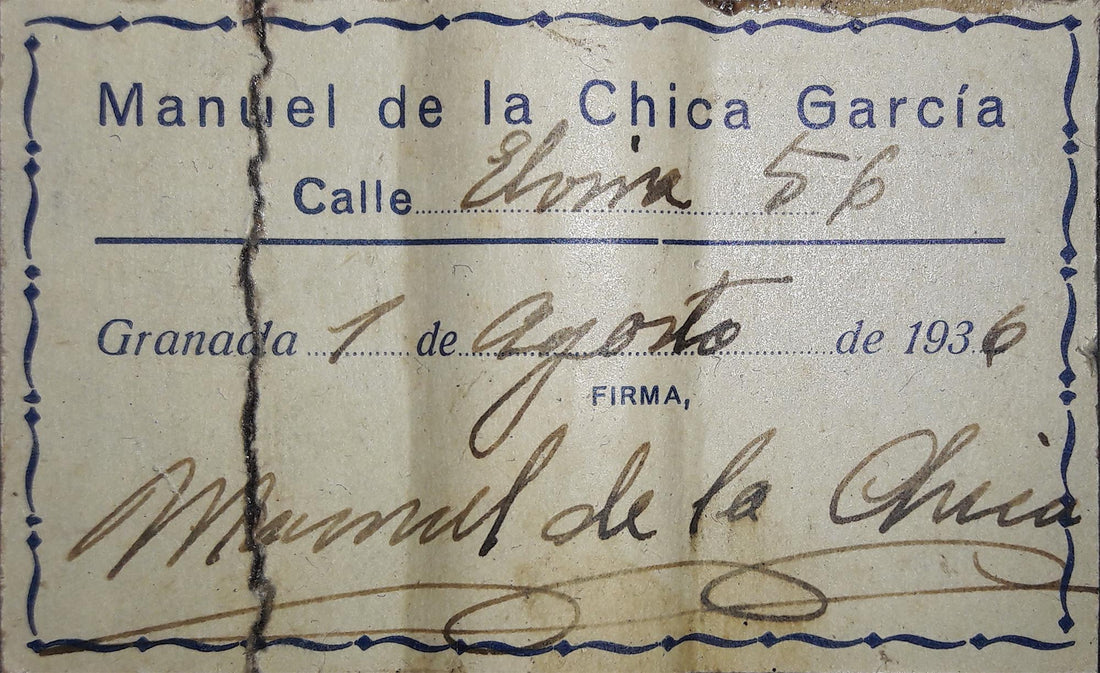 Manuel de la Chica García
Calle Elvira 56
Granada 1 de Agosto de 1936
FIRMA,
Manuel de la Chica